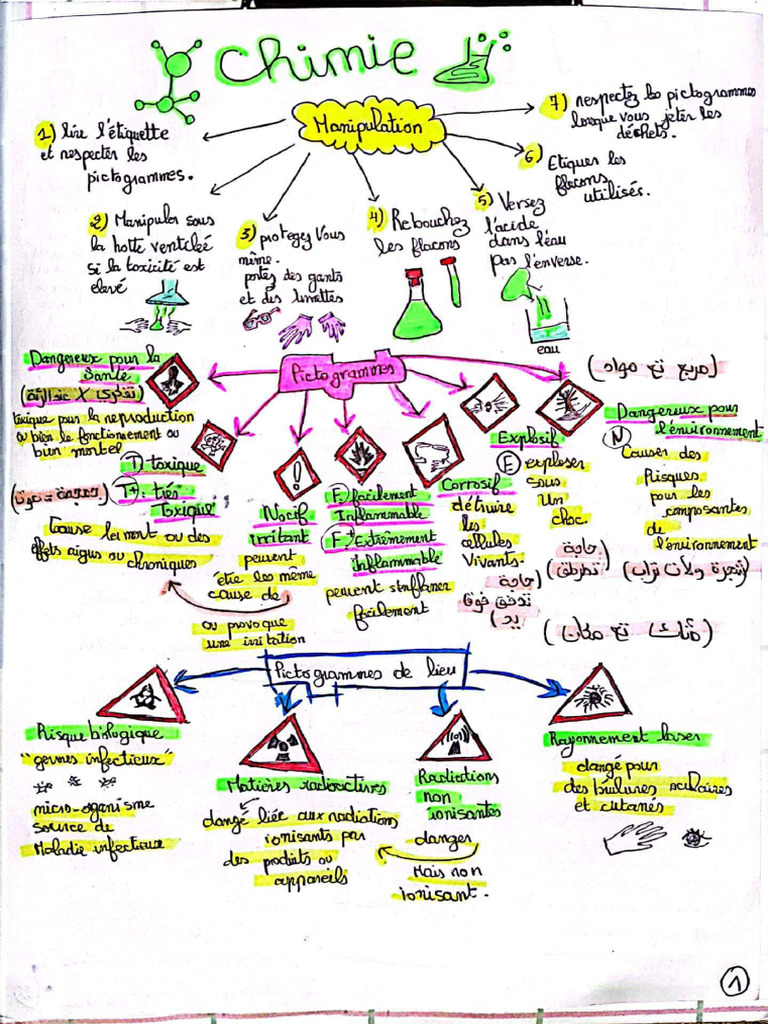 Chimie
Manipulation
1) lire l'étiquette
et respecter les
pictogrammes.
2) Manipuler sous
la hotte ventilée
si la toxicité est
elevé
3) protegez Vous
même.
portez des gants
et des lunettes
4) Rebouchez
les flacons
5) Versez
l'acide
dans l'eau
pas l'enverse.
eau
6) Etiquez les
flacons
utilisés.
7) respectez les pictogrammes
lorsque vous jeter les
déchets.
Pictogrammes
Dangereux pour la
Santé
toxique pour la reproduction
ou bien le fonctionement ou
bien mortel
T toxique
T+: très
Toxique
Cause la mort ou des
effets aigus ou chroniques
Nocif
irritant
peuvent
être les même
cause de
ou provoque
une irritation
F: facilement
Inflammable
F+: Extrêmement
inflammable
peuvent s'enflamer
facilement
Corrosif
détruire
les
cellules
Vivants.
(حاجة
تدفق فوق
يد)
Explosif
E exploser
sous
un
choc.
(حاجة
تطرطق)
(مربع تع مواد)
Dangereux pour
l'énvironnement
N Causer des
Risques
pour les
composantes
de
l'énvironnement
(شجرة ولات تراب)
(مثلث تع مكان)
Pictogrammes de lieu
Risque biologique
"germes infectieux"
micro-organisme
source de
Maladie infectieux
Matières radioactives
dangé liée aux radiations
ionisants par
des produits ou
appareils
Radiations
non
ionisantes
danger
Mais non
ionisant.
Rayonnement laser
dangé pour
des brulures oculaires
et cutanés
1